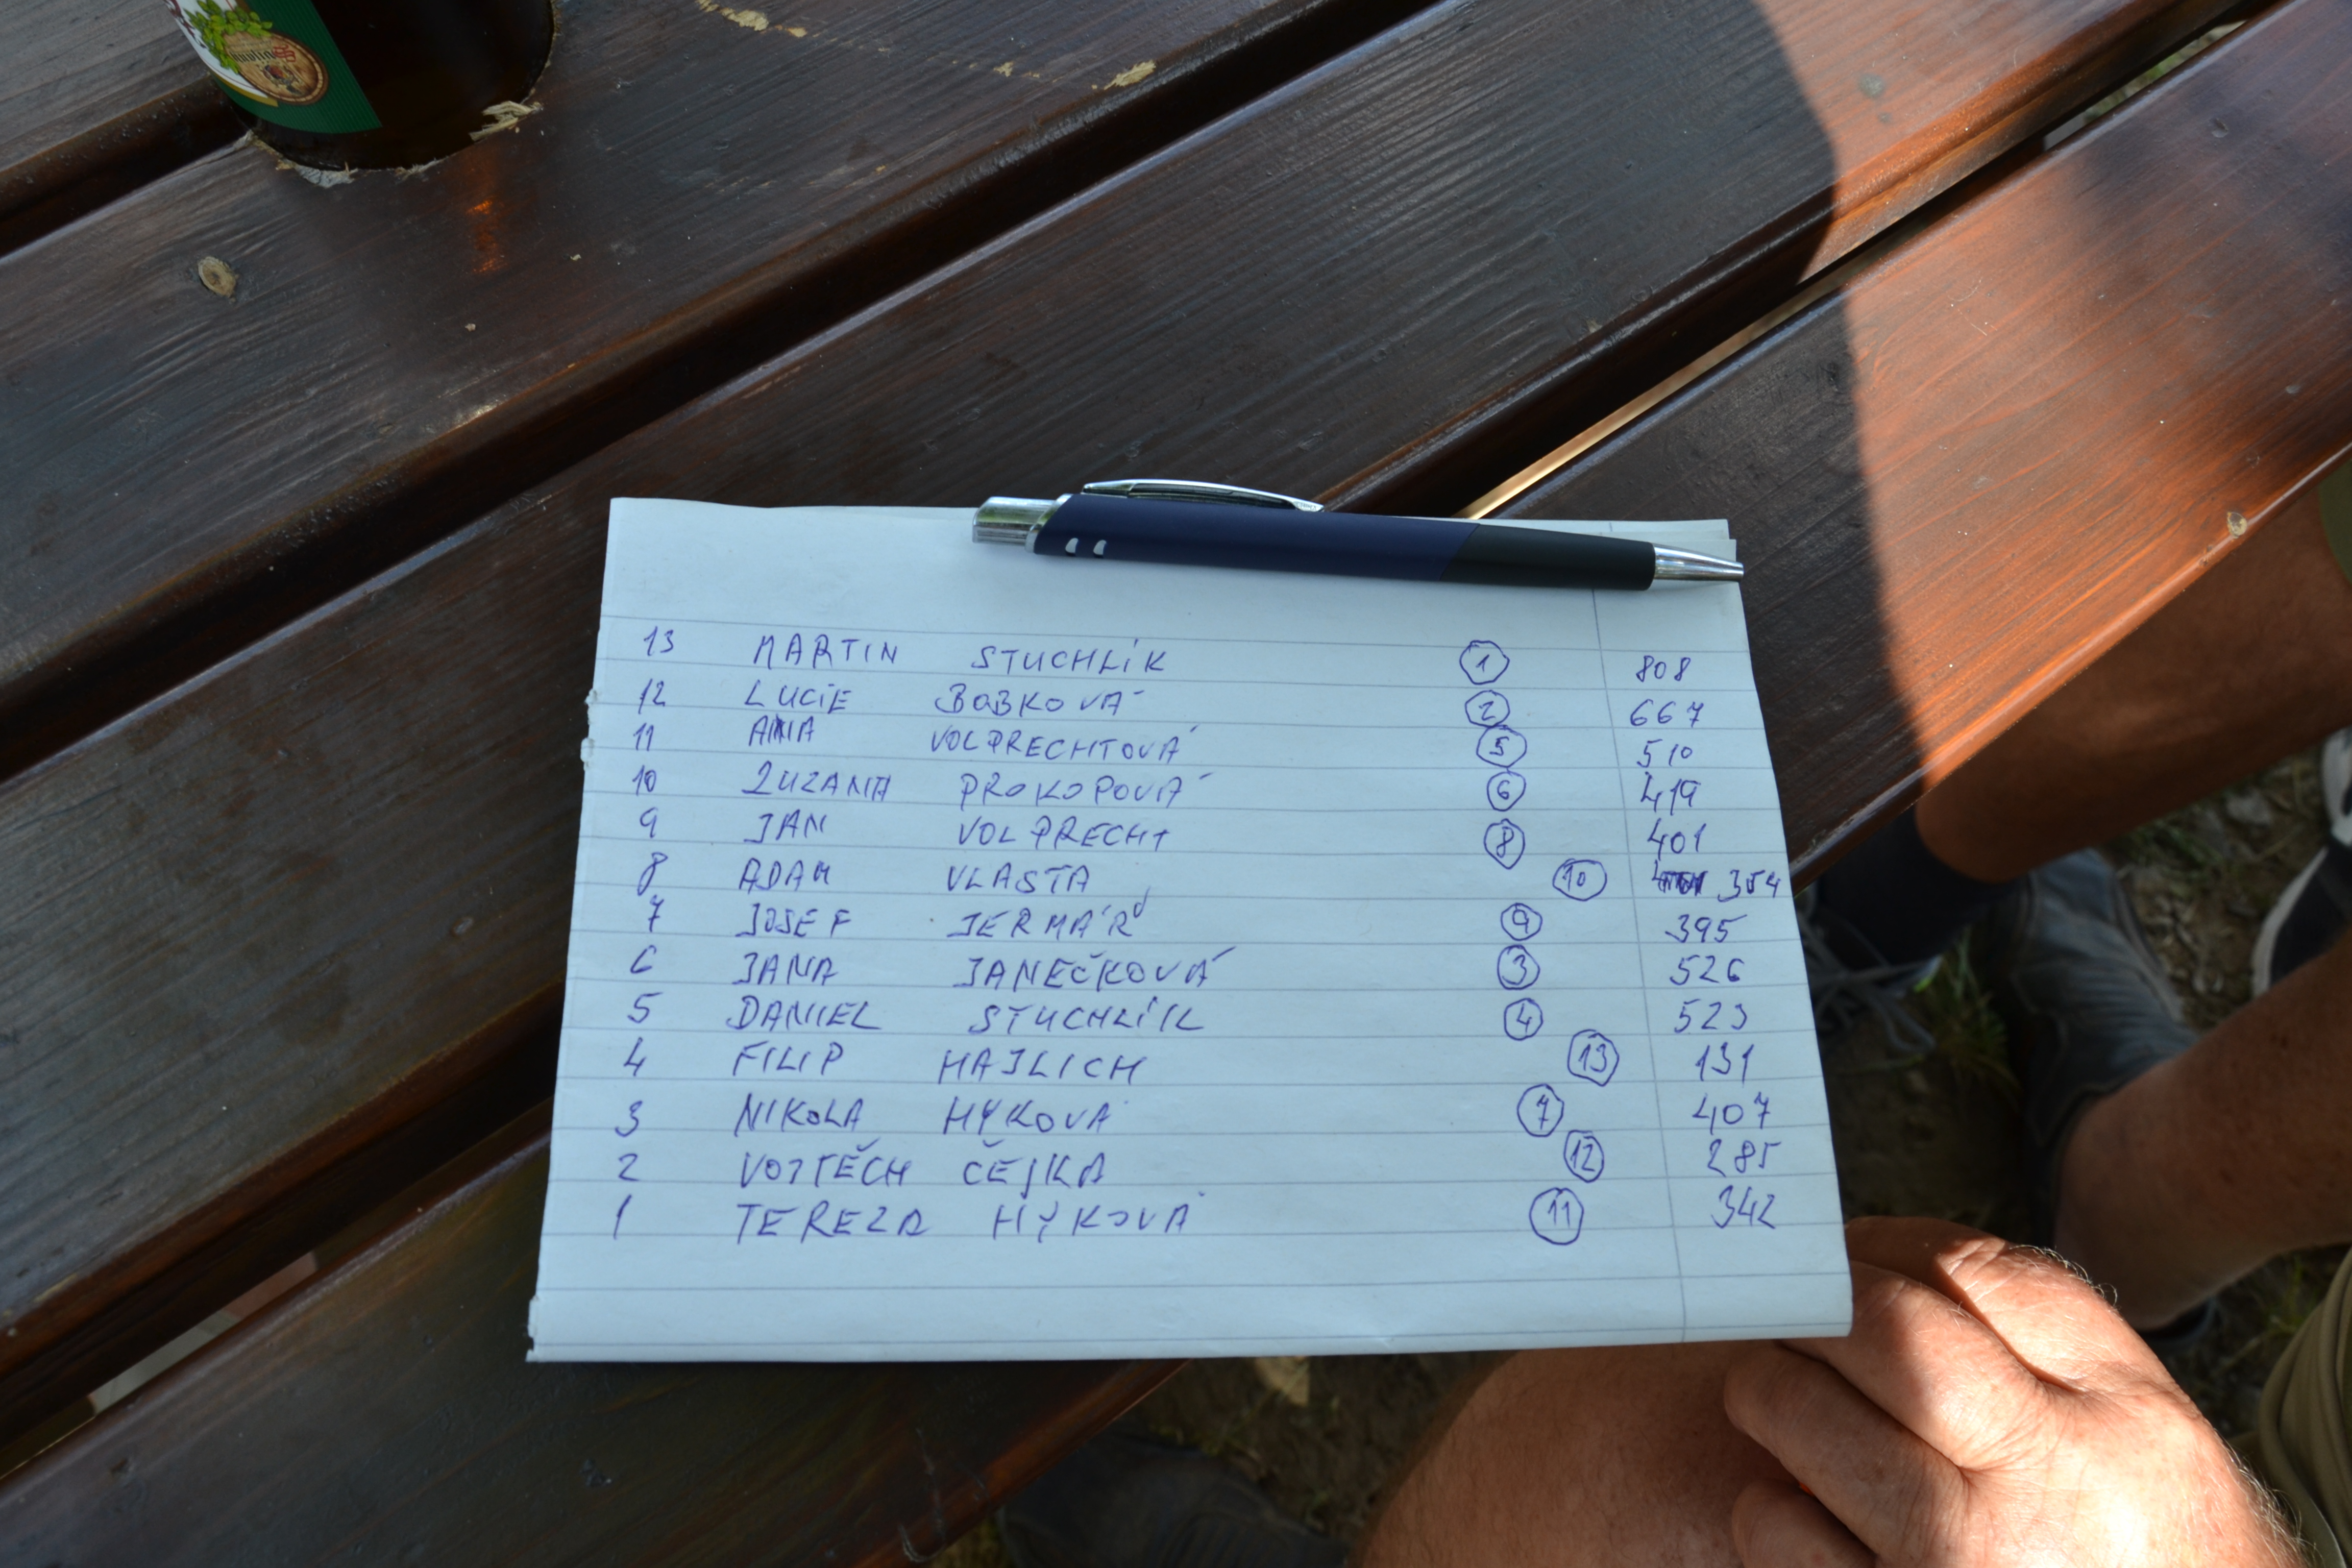 13 MARTIN STUCHLÍK 1 808
12 LUCIE BOBKOVÁ 2 667
11 ANNA VOLPRECHTOVÁ 5 510
10 ZUZANA PROKOPOVÁ 6 419
9 JAN VOLPRECHT 8 401
8 ADAM VLASTA 10 354
7 JOSEF JERMÁŘ 9 395
6 JANA JANEČKOVÁ 3 526
5 DANIEL STUCHLÍK 4 523
4 FILIP HAJLICH 13 131
3 NIKOLA HÝKOVÁ 7 407
2 VOJTĚCH ČEJKA 12 285
1 TEREZA HÝKOVÁ 11 342